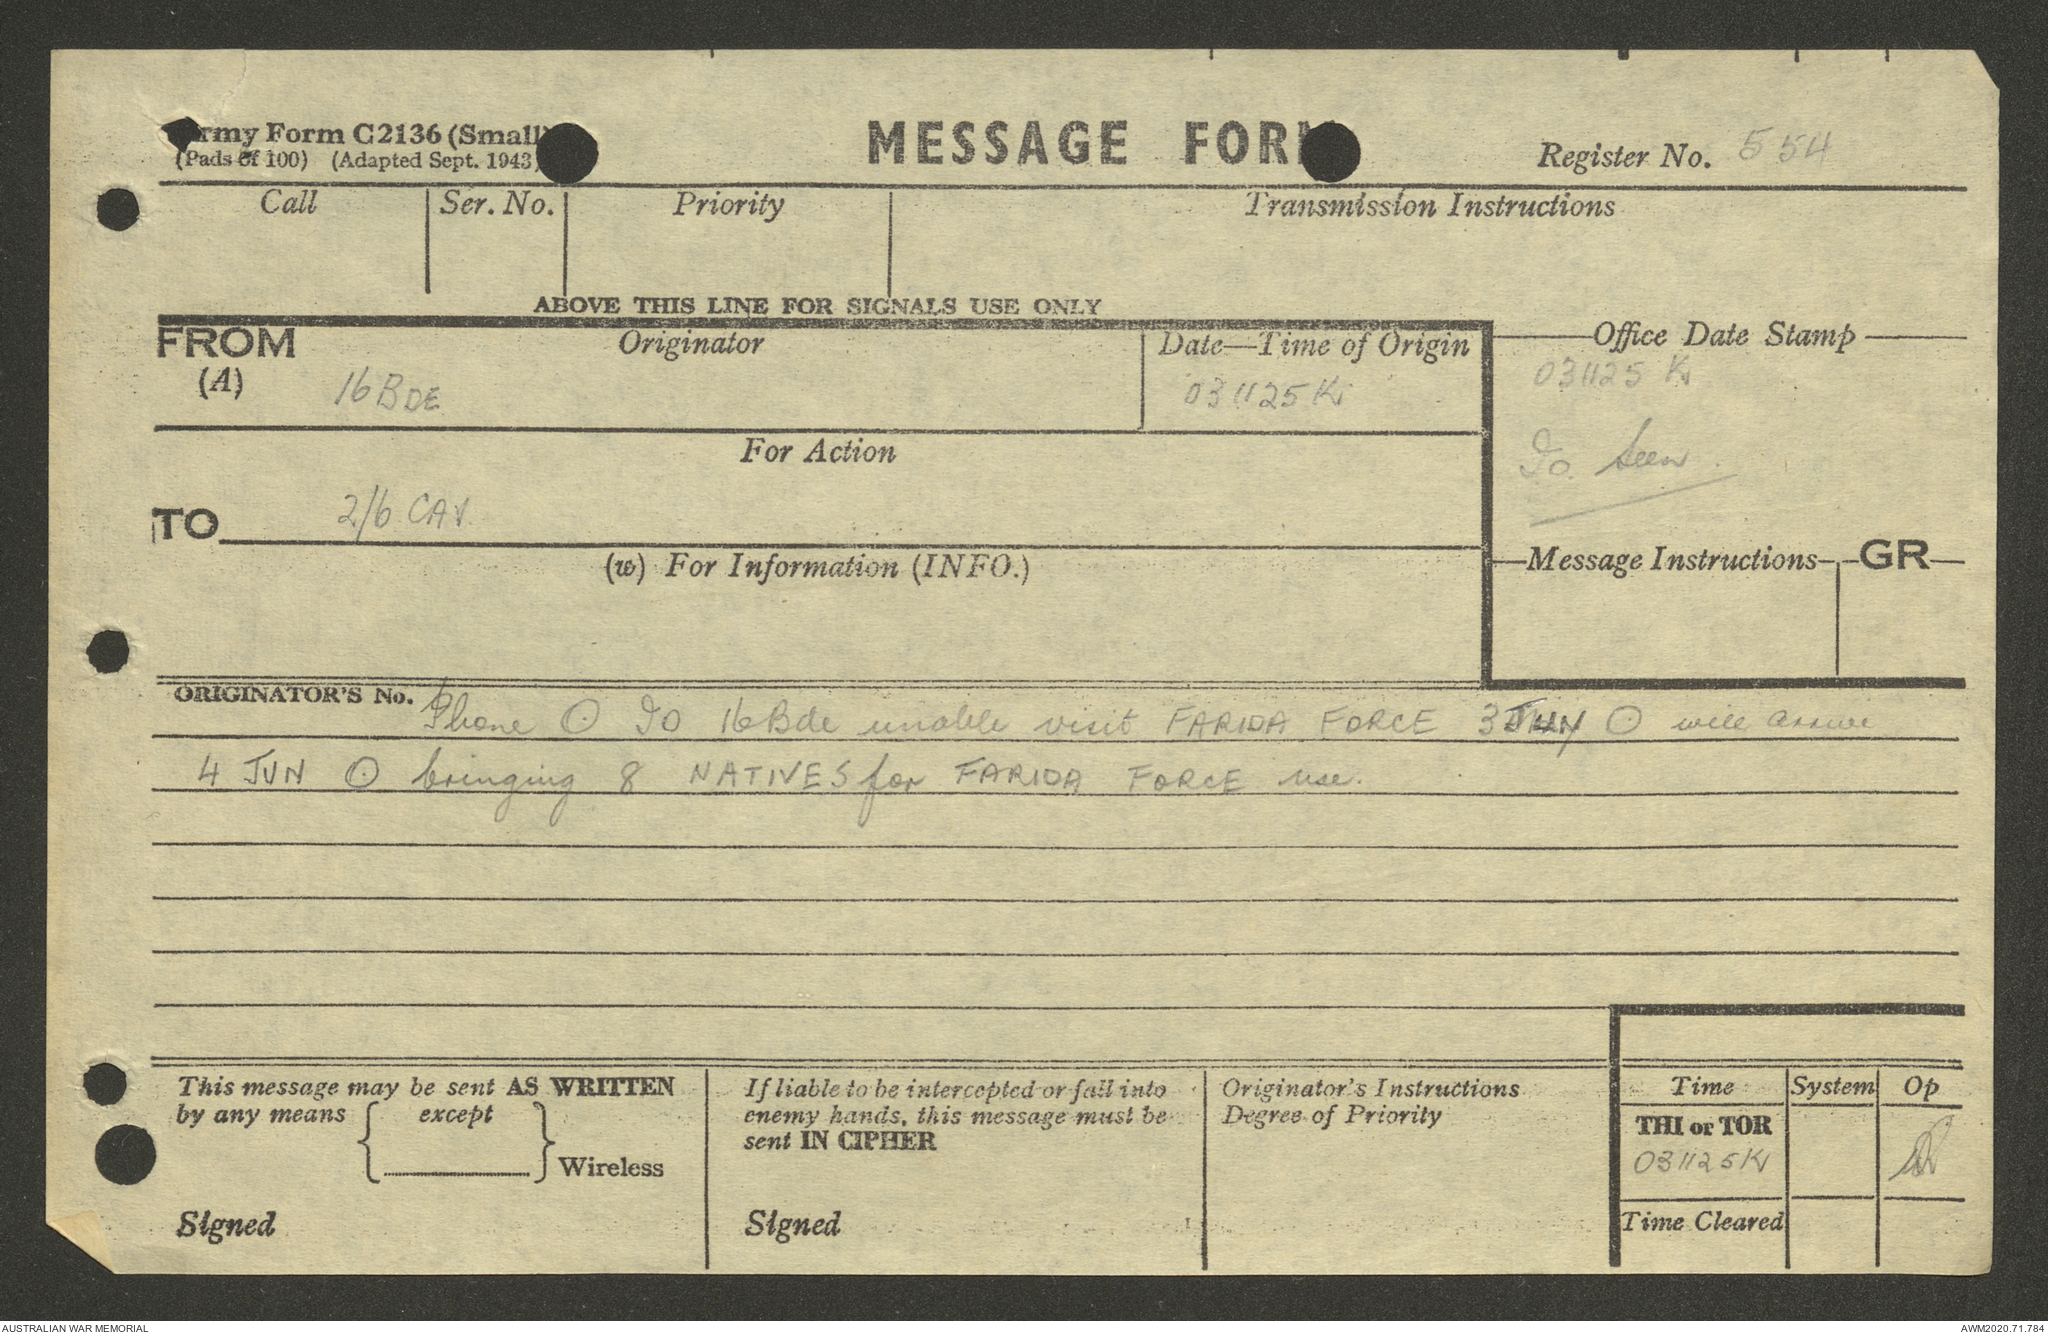 Army Form C2136 (Small)
(Pads of 100) (Adapted Sept. 1943)
MESSAGE FORM
Register No. 554
Call
Ser. No.
Priority
Transmission Instructions
ABOVE THIS LINE FOR SIGNALS USE ONLY
FROM
(A)
Originator
16 BDE
Date—Time of Origin
031125K
Office Date Stamp
031125 K
IO Seen
For Action
TO
2/6 CAV
(w) For Information (INFO.)
Message Instructions
GR
ORIGINATOR'S No.
Phone ⊙ IO 16 Bde unable visit FARIDA FORCE 3 JUN ⊙ will arrive
4 JUN ⊙ bringing 8 NATIVES for FARIDA FORCE use.
This message may be sent AS WRITTEN
by any means { except
} Wireless
Signed
If liable to be intercepted or fall into
enemy hands, this message must be
sent IN CIPHER
Signed
Originator's Instructions
Degree of Priority
Time
System
Op
THI or TOR
031125K
Time Cleared
AUSTRALIAN WAR MEMORIAL
AWM2020.71.784